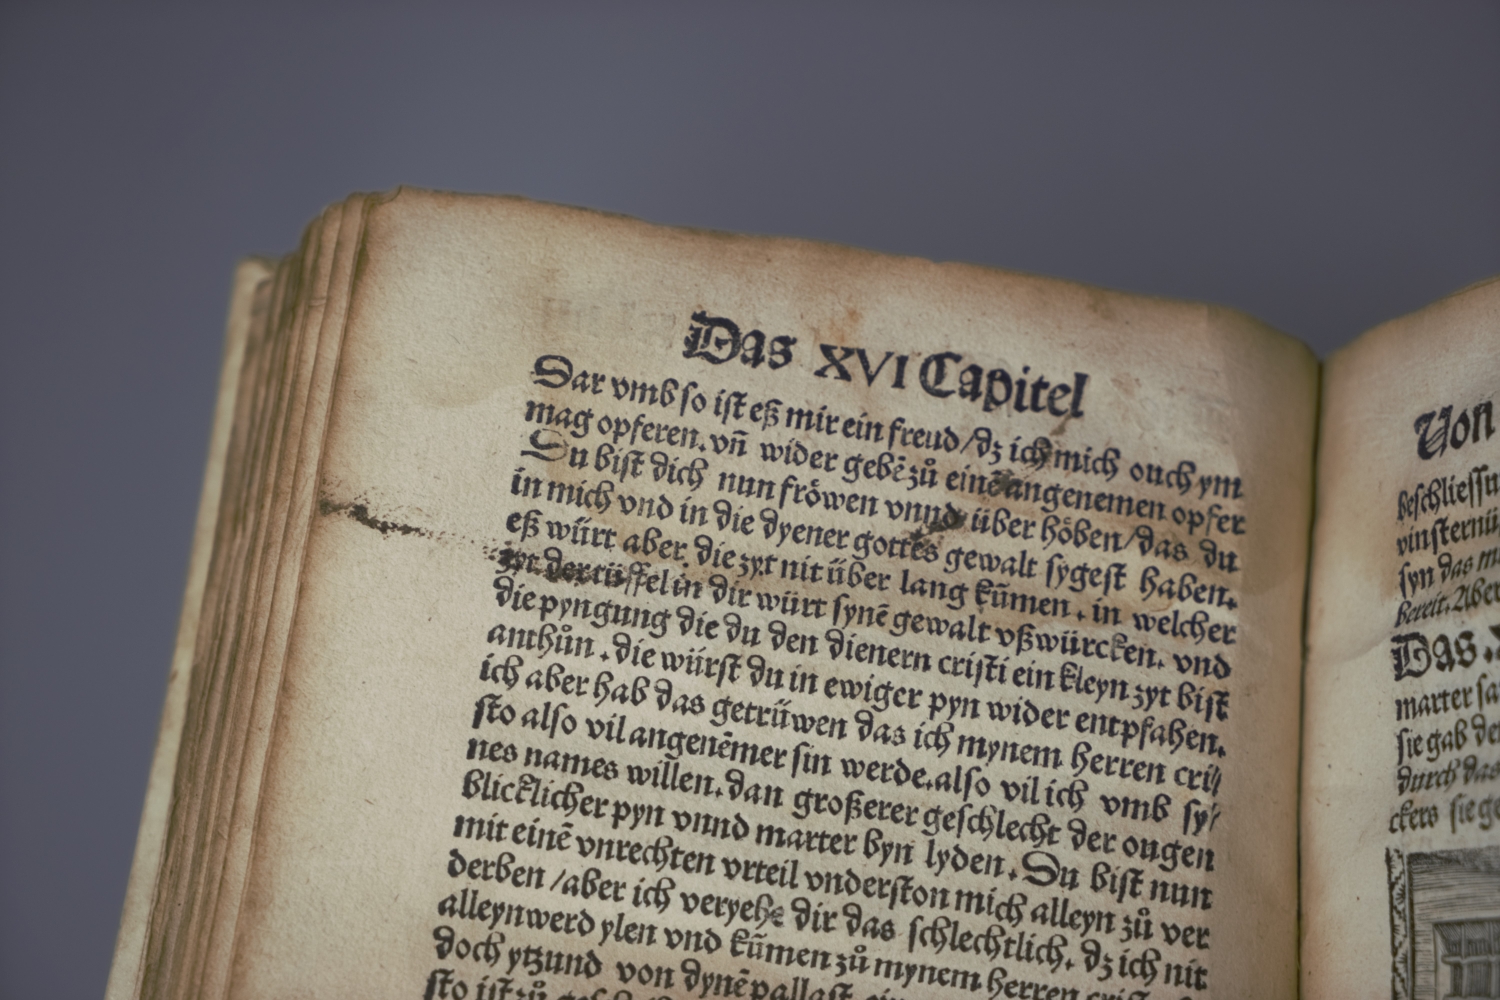 Das XVI Capitel
Dar vmb so ist eß mir ein freud/dz ich mich ouch ym
mag opferen. vñ wider gebẽ zů einẽ angenemen opfer
Du bist dich nun fröwen vnnd über höben/das du
in mich vnd in die dyener gottes gewalt sygest haben.
eß würt aber. die zyt nit über lang kũmen. in welcher
zyt der tüffel in dir würt synẽ gewalt vßwürcken. vnd
die pyngung die du den dienern cristi ein kleyn zyt bist
anthůn. die würst du in ewiger pyn wider entpfahen.
ich aber hab das getrüwen das ich mynem herren cri//
sto also vil angenẽmer sin werde. also vil ich vmb sy/
nes names willen. dan großerer geschlecht der ougen
blicklicher pyn vnnd marter byn lyden. Du bist nun
mit einẽ vnrechten vrteil vnderston mich alleyn zů ver
derben/aber ich veryehe dir das schlechtlich. dz ich nit
alleyn werd ylen vnd kũmen zů mynem herren
doch ytzund von dynẽ pallast
sto ist zů
Von
beschliessu
vinsternü
syn das
bereit. Aber
Das.
marter
sie gab
durch das
ckers sie